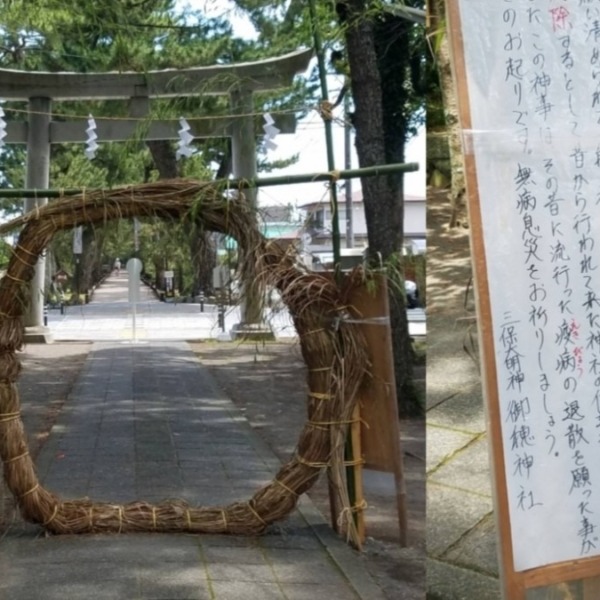 除するとして昔から行われて来た神社の
たこの神事は、その昔に流行った疫病の退散を願った事が
えきびょう
のお起りです。無病息災をお祈りしましょう。
三保 御穂神社